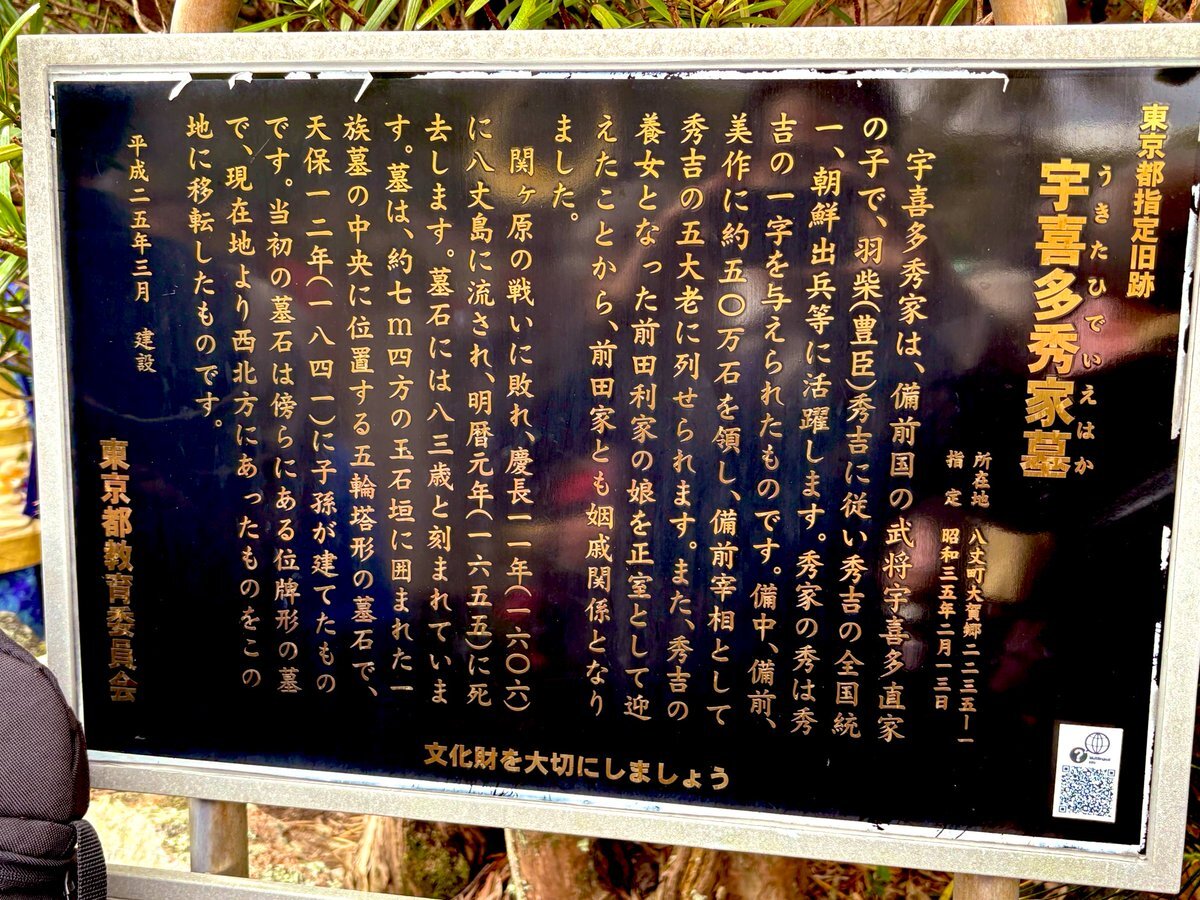 東京都指定旧跡
うきたひでいえはか
宇喜多秀家墓
所在地 八丈町大賀郷二二三五ー一
指定 昭和三五年二月一三日
宇喜多秀家は、備前国の武将宇喜多直家
の子で、羽柴(豊臣)秀吉に従い秀吉の全国統
一、朝鮮出兵等に活躍します。秀家の秀は秀
吉の一字を与えられたものです。備中、備前、
美作に約五〇万石を領し、備前宰相として
秀吉の五大老に列せられます。また、秀吉の
養女となった前田利家の娘を正室として迎
えたことから、前田家とも姻戚関係となり
ました。
関ヶ原の戦いに敗れ、慶長一一年(一六〇六)
に八丈島に流され、明暦元年(一六五五)に死
去します。墓石には八三歳と刻まれていま
す。墓は、約七m四方の玉石垣に囲まれた一
族墓の中央に位置する五輪塔形の墓石で、
天保一二年(一八四一)に子孫が建てたもの
です。当初の墓石は傍らにある位牌形の墓
で、現在地より西北方にあったものをこの
地に移転したものです。
平成二五年三月 建設
東京都教育委員会
文化財を大切にしましょう
Multilingual
Info